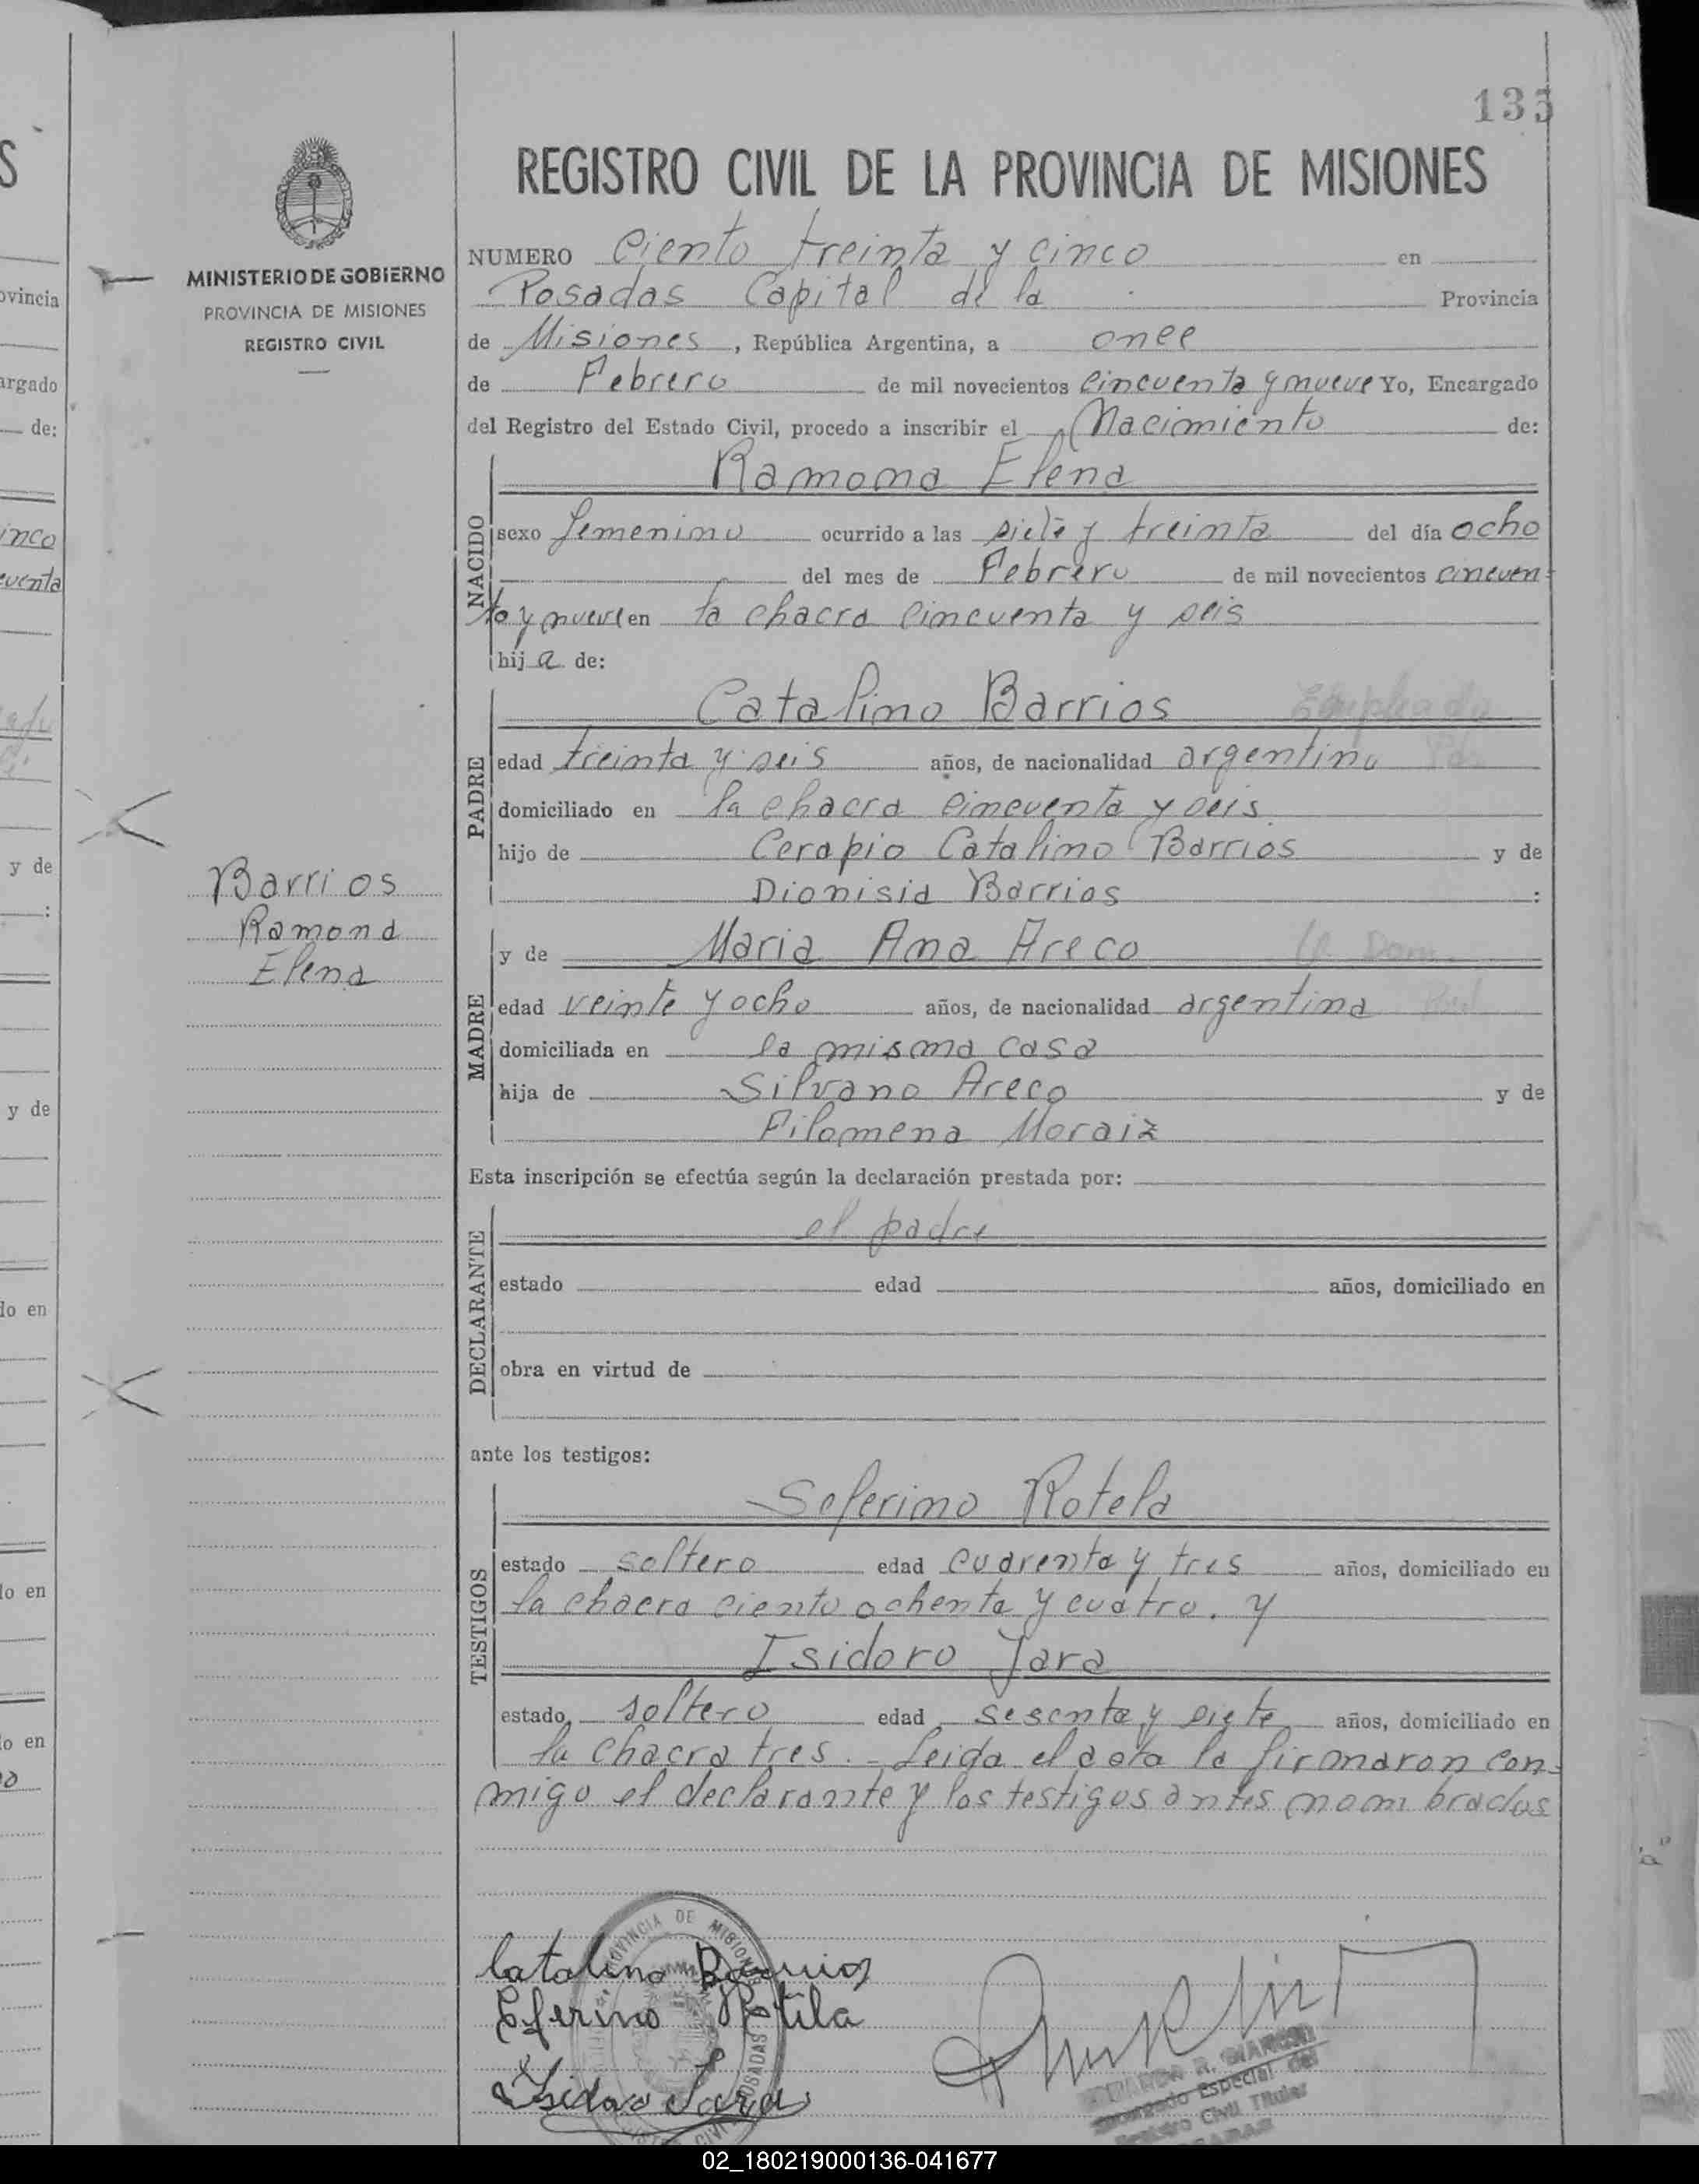 135
REGISTRO CIVIL DE LA PROVINCIA DE MISIONES
MINISTERIO DE GOBIERNO
PROVINCIA DE MISIONES
REGISTRO CIVIL
NUMERO Ciento treinta y cinco en
Posadas Capital de la Provincia
de Misiones, República Argentina, a once
de Febrero de mil novecientos cincuenta y nueve Yo, Encargado
del Registro del Estado Civil, procedo a inscribir el Nacimiento de:
Ramona Elena
NACIDO
sexo femenino ocurrido a las siete y treinta del día ocho
del mes de Febrero de mil novecientos cincuen
ta y nueve en la chacra cincuenta y seis
hija de:
Catalino Barrios Empleado
PADRE
edad treinta y seis años, de nacionalidad argentino
domiciliado en la chacra cincuenta y seis
hijo de Cerapio Catalino Barrios y de
Dionisia Barrios :
Barrios
Ramona
Elena
y de Maria Ana Areco
MADRE
edad veinte y ocho años, de nacionalidad argentina
domiciliada en la misma casa
hija de Silvano Areco y de
Filomena Moraiz
Esta inscripción se efectúa según la declaración prestada por:
el padre
DECLARANTE
estado edad años, domiciliado en
obra en virtud de
ante los testigos:
Seferino Rotela
TESTIGOS
estado soltero edad cuarenta y tres años, domiciliado en
la chacra ciento ochenta y cuatro. y
Isidoro Jara
estado soltero edad sesenta y siete años, domiciliado en
la chacra tres.- Leida el acta la firmaron con-
migo el declarante y los testigos antes nombrados
Catalino Barrios
Seferino Rotela
Isidoro Jara
PROVINCIA DE MISIONES
POSADAS
Encargado Especial del
Registro Civil Titular
POSADAS
02_180219000136-041677